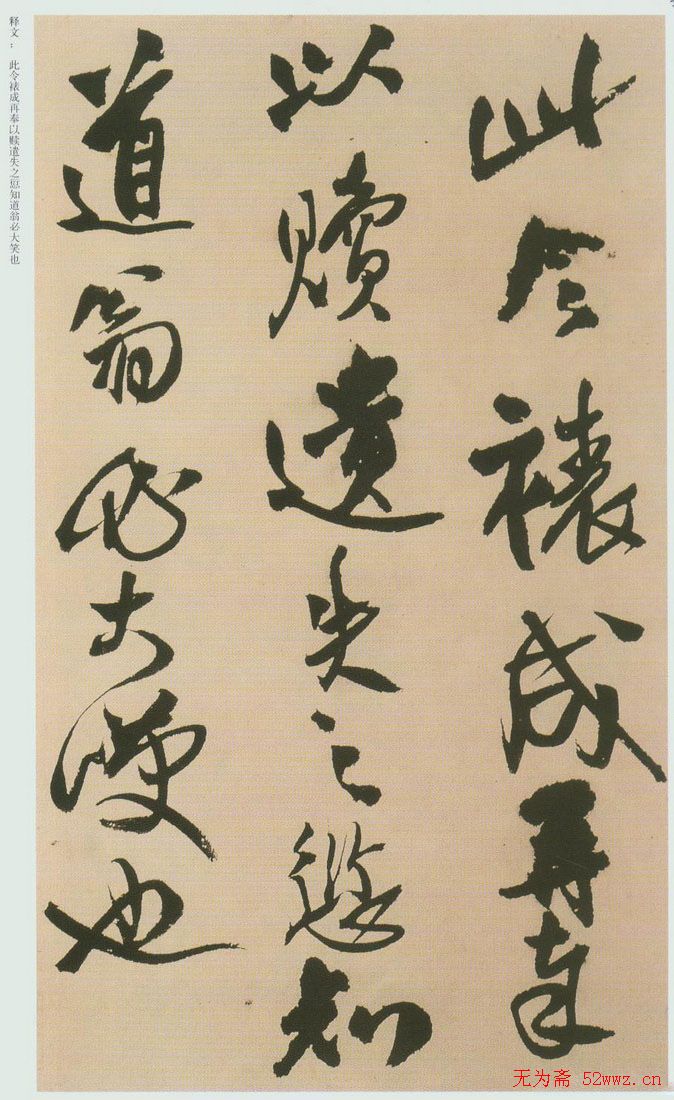 此令裱成再奉
以贖遺失之愆知
道翁必大噱也
释文：此令裱成再奉以赎遗失之愆知道翁必大笑也
无为斋 52wwz.cn